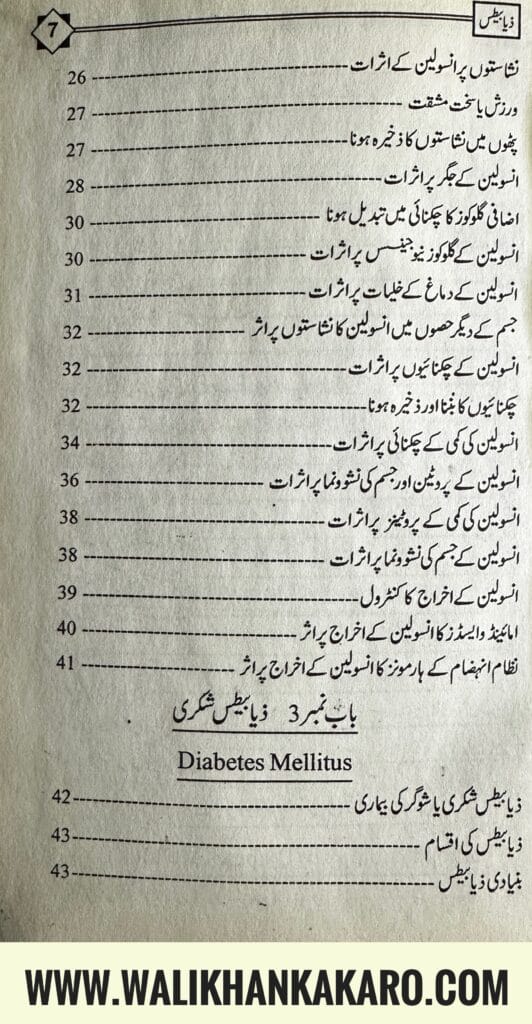 ذیابیطس 7
نشاستوں پر انسولین کے اثرات ---------- 26
ورزش یا سخت مشقت ---------- 27
پٹھوں میں نشاستوں کا ذخیرہ ہونا ---------- 27
انسولین کے جگر پر اثرات ---------- 28
اضافی گلوکوز کا چکنائی میں تبدیل ہونا ---------- 30
انسولین کے گلوکوز نیو جینسس پر اثرات ---------- 30
انسولین کے دماغ کے خلیات پر اثرات ---------- 31
جسم کے دیگر حصوں میں انسولین کا نشاستوں پر اثر ---------- 32
انسولین کے چکنائیوں پر اثرات ---------- 32
چکنائیوں کا بننا اور ذخیرہ ہونا ---------- 32
انسولین کی کمی کے چکنائی پر اثرات ---------- 34
انسولین کے پروٹین اور جسم کی نشوونما پر اثرات ---------- 36
انسولین کی کمی کے پروٹینز پر اثرات ---------- 38
انسولین کے جسم کی نشوونما پر اثرات ---------- 38
انسولین کے اخراج کا کنٹرول ---------- 39
امائینڈ وایسڈز کا انسولین کے اخراج پر اثر ---------- 40
نظام انہضام کے ہارمونز کا انسولین کے اخراج پر اثر ---------- 41
باب نمبر 3 ذیابیطس شکری
Diabetes Mellitus
ذیابیطس شکری یا شوگر کی بیماری ---------- 42
ذیابیطس کی اقسام ---------- 43
بنیادی ذیابیطس ---------- 43
WWW.WALIKHANKAKARO.COM